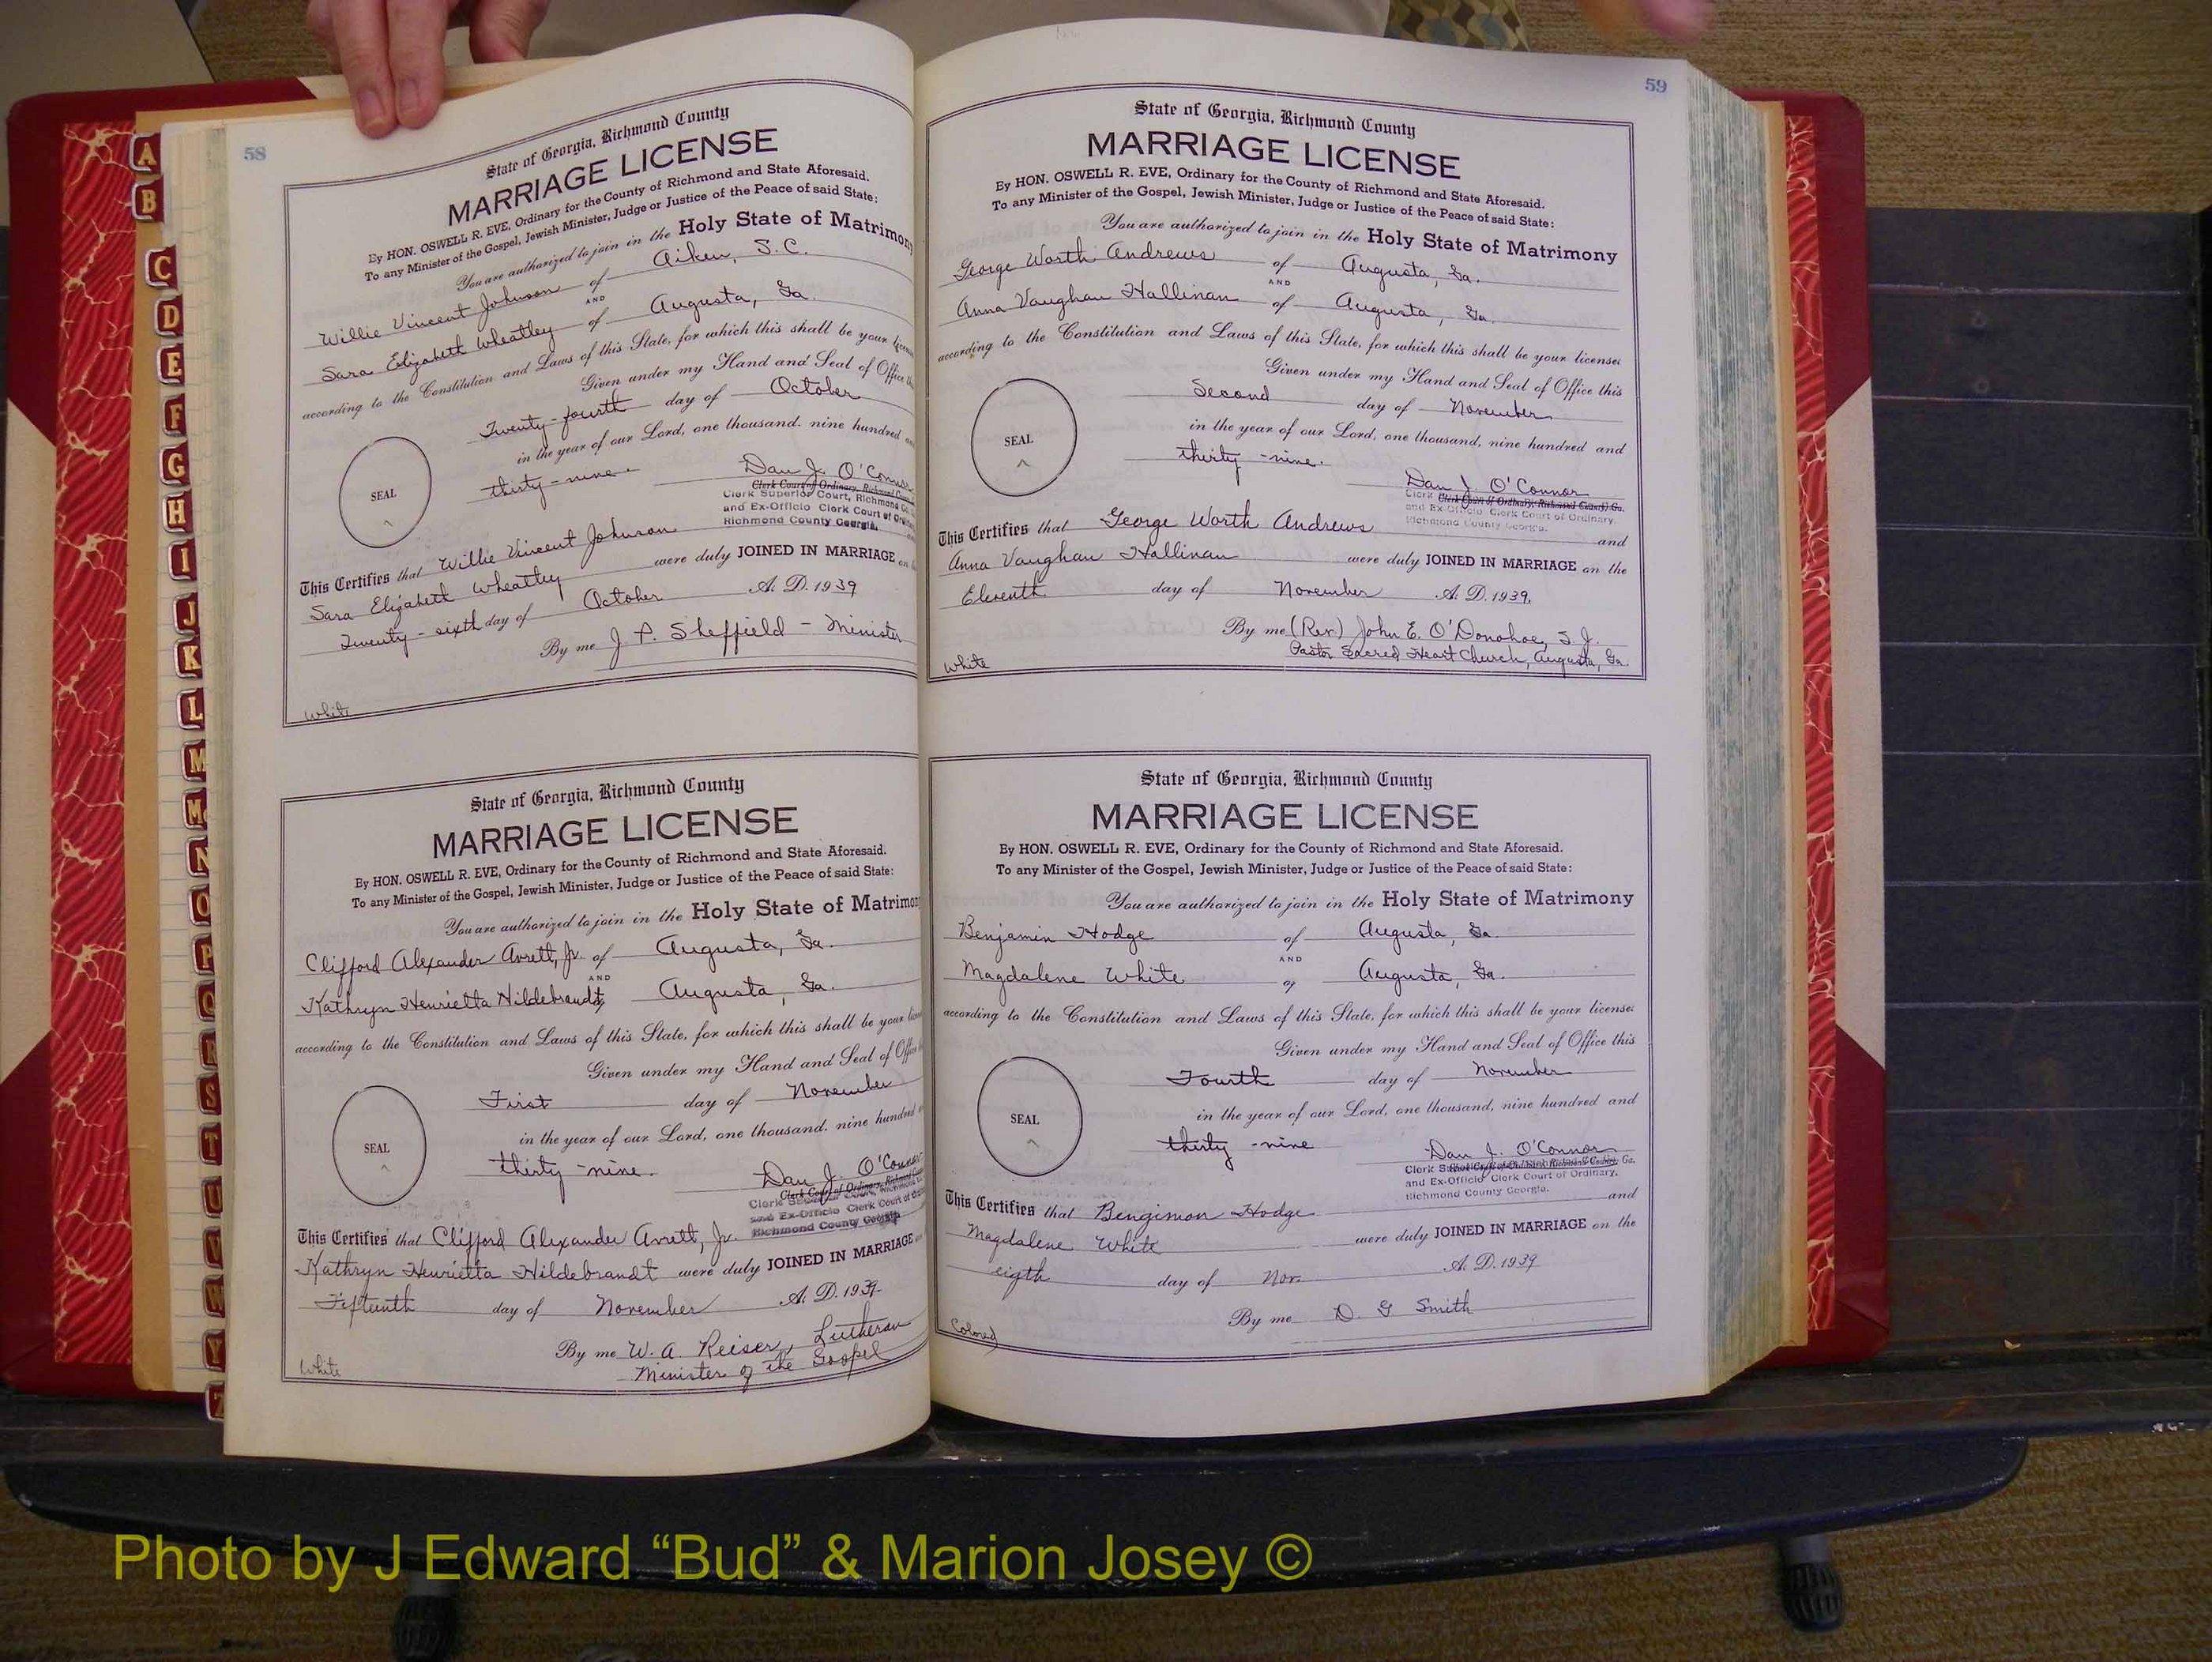 58
State of Georgia, Richmond County
MARRIAGE LICENSE
By HON. OSWELL R. EVE, Ordinary for the County of Richmond and State Aforesaid.
To any Minister of the Gospel, Jewish Minister, Judge or Justice of the Peace of said State:
You are authorized to join in the Holy State of Matrimony
Willie Vincent Johnson of Aiken, S.C.
AND
Sara Elizabeth Wheatley of Augusta, Ga.
according to the Constitution and Laws of this State, for which this shall be your
Given under my Hand and Seal of Office
Twenty-fourth day of October
in the year of our Lord, one thousand. nine hundred
thirty-nine.
SEAL
Dan J. O'Connor
Clerk Court of Ordinary, Richmond
Clerk Superior Court, Richmond
and Ex-Officio Clerk Court of
Richmond County Georgia.
This Certifies that Willie Vincent Johnson
Sara Elizabeth Wheatley were duly JOINED IN MARRIAGE on
Twenty-sixth day of October A. D. 1939
By me J. P. Sheffield - Minister
White
State of Georgia, Richmond County
MARRIAGE LICENSE
By HON. OSWELL R. EVE, Ordinary for the County of Richmond and State Aforesaid.
To any Minister of the Gospel, Jewish Minister, Judge or Justice of the Peace of said State:
You are authorized to join in the Holy State of
Clifford Alexander Avrett, Jr. of Augusta, Ga.
AND
Kathryn Henrietta Hildebrandt, Augusta, Ga.
according to the Constitution and Laws of this State, for which this shall be your
Given under my Hand and Seal of Office
First day of November
in the year of our Lord, one thousand. nine hundred
thirty-nine.
SEAL
Dan J. O'Connor
Clerk Court of Ordinary, Richmond
Clerk Superior Court, Richmond
and Ex-Officio Clerk Court of
Richmond County Georgia
This Certifies that Clifford Alexander Avrett, Jr.
Kathryn Henrietta Hildebrandt were duly JOINED IN MARRIAGE
Fifteenth day of November A. D. 1939
By me W. A. Reiser, Lutheran
Minister of the Gospel
White
59
State of Georgia, Richmond County
MARRIAGE LICENSE
By HON. OSWELL R. EVE, Ordinary for the County of Richmond and State Aforesaid.
To any Minister of the Gospel, Jewish Minister, Judge or Justice of the Peace of said State:
You are authorized to join in the Holy State of Matrimony
George Worth Andrews of Augusta, Ga.
AND
Anna Vaughan Hallinan of Augusta, Ga.
according to the Constitution and Laws of this State, for which this shall be your license:
Given under my Hand and Seal of Office this
Second day of November
in the year of our Lord, one thousand, nine hundred and
thirty-nine.
SEAL
Dan J. O'Connor
Clerk Clerk Court of Ordinary, Richmond County, Ga.
and Ex-Officio Clerk Court of Ordinary.
Richmond County Georgia.
This Certifies that George Worth Andrews and
Anna Vaughan Hallinan were duly JOINED IN MARRIAGE on the
Eleventh day of November A. D. 1939.
By me (Rev) John E. O'Donohoe, S. J.
Pastor Sacred Heart Church, Augusta, Ga.
White
State of Georgia, Richmond County
MARRIAGE LICENSE
By HON. OSWELL R. EVE, Ordinary for the County of Richmond and State Aforesaid.
To any Minister of the Gospel, Jewish Minister, Judge or Justice of the Peace of said State:
You are authorized to join in the Holy State of Matrimony
Benjamin Hodge of Augusta, Ga.
AND
Magdalene White of Augusta, Ga.
according to the Constitution and Laws of this State, for which this shall be your license:
Given under my Hand and Seal of Office this
Fourth day of November
in the year of our Lord, one thousand, nine hundred and
thirty-nine
SEAL
Dan J. O'Connor
Clerk Clerk Court of Ordinary, Richmond County, Ga.
and Ex-Officio Clerk Court of Ordinary.
Richmond County Georgia.
This Certifies that Bengimon Hodge and
Magdalene White were duly JOINED IN MARRIAGE on the
eigth day of Nov. A. D. 1939
By me D. G Smith
Colored
A
B
C
D
E
F
G
H
I
J
K
L
M
Mc
N
O
P
Q
R
S
T
U
V
W
Y
Z
Photo by J Edward “Bud” & Marion Josey ©